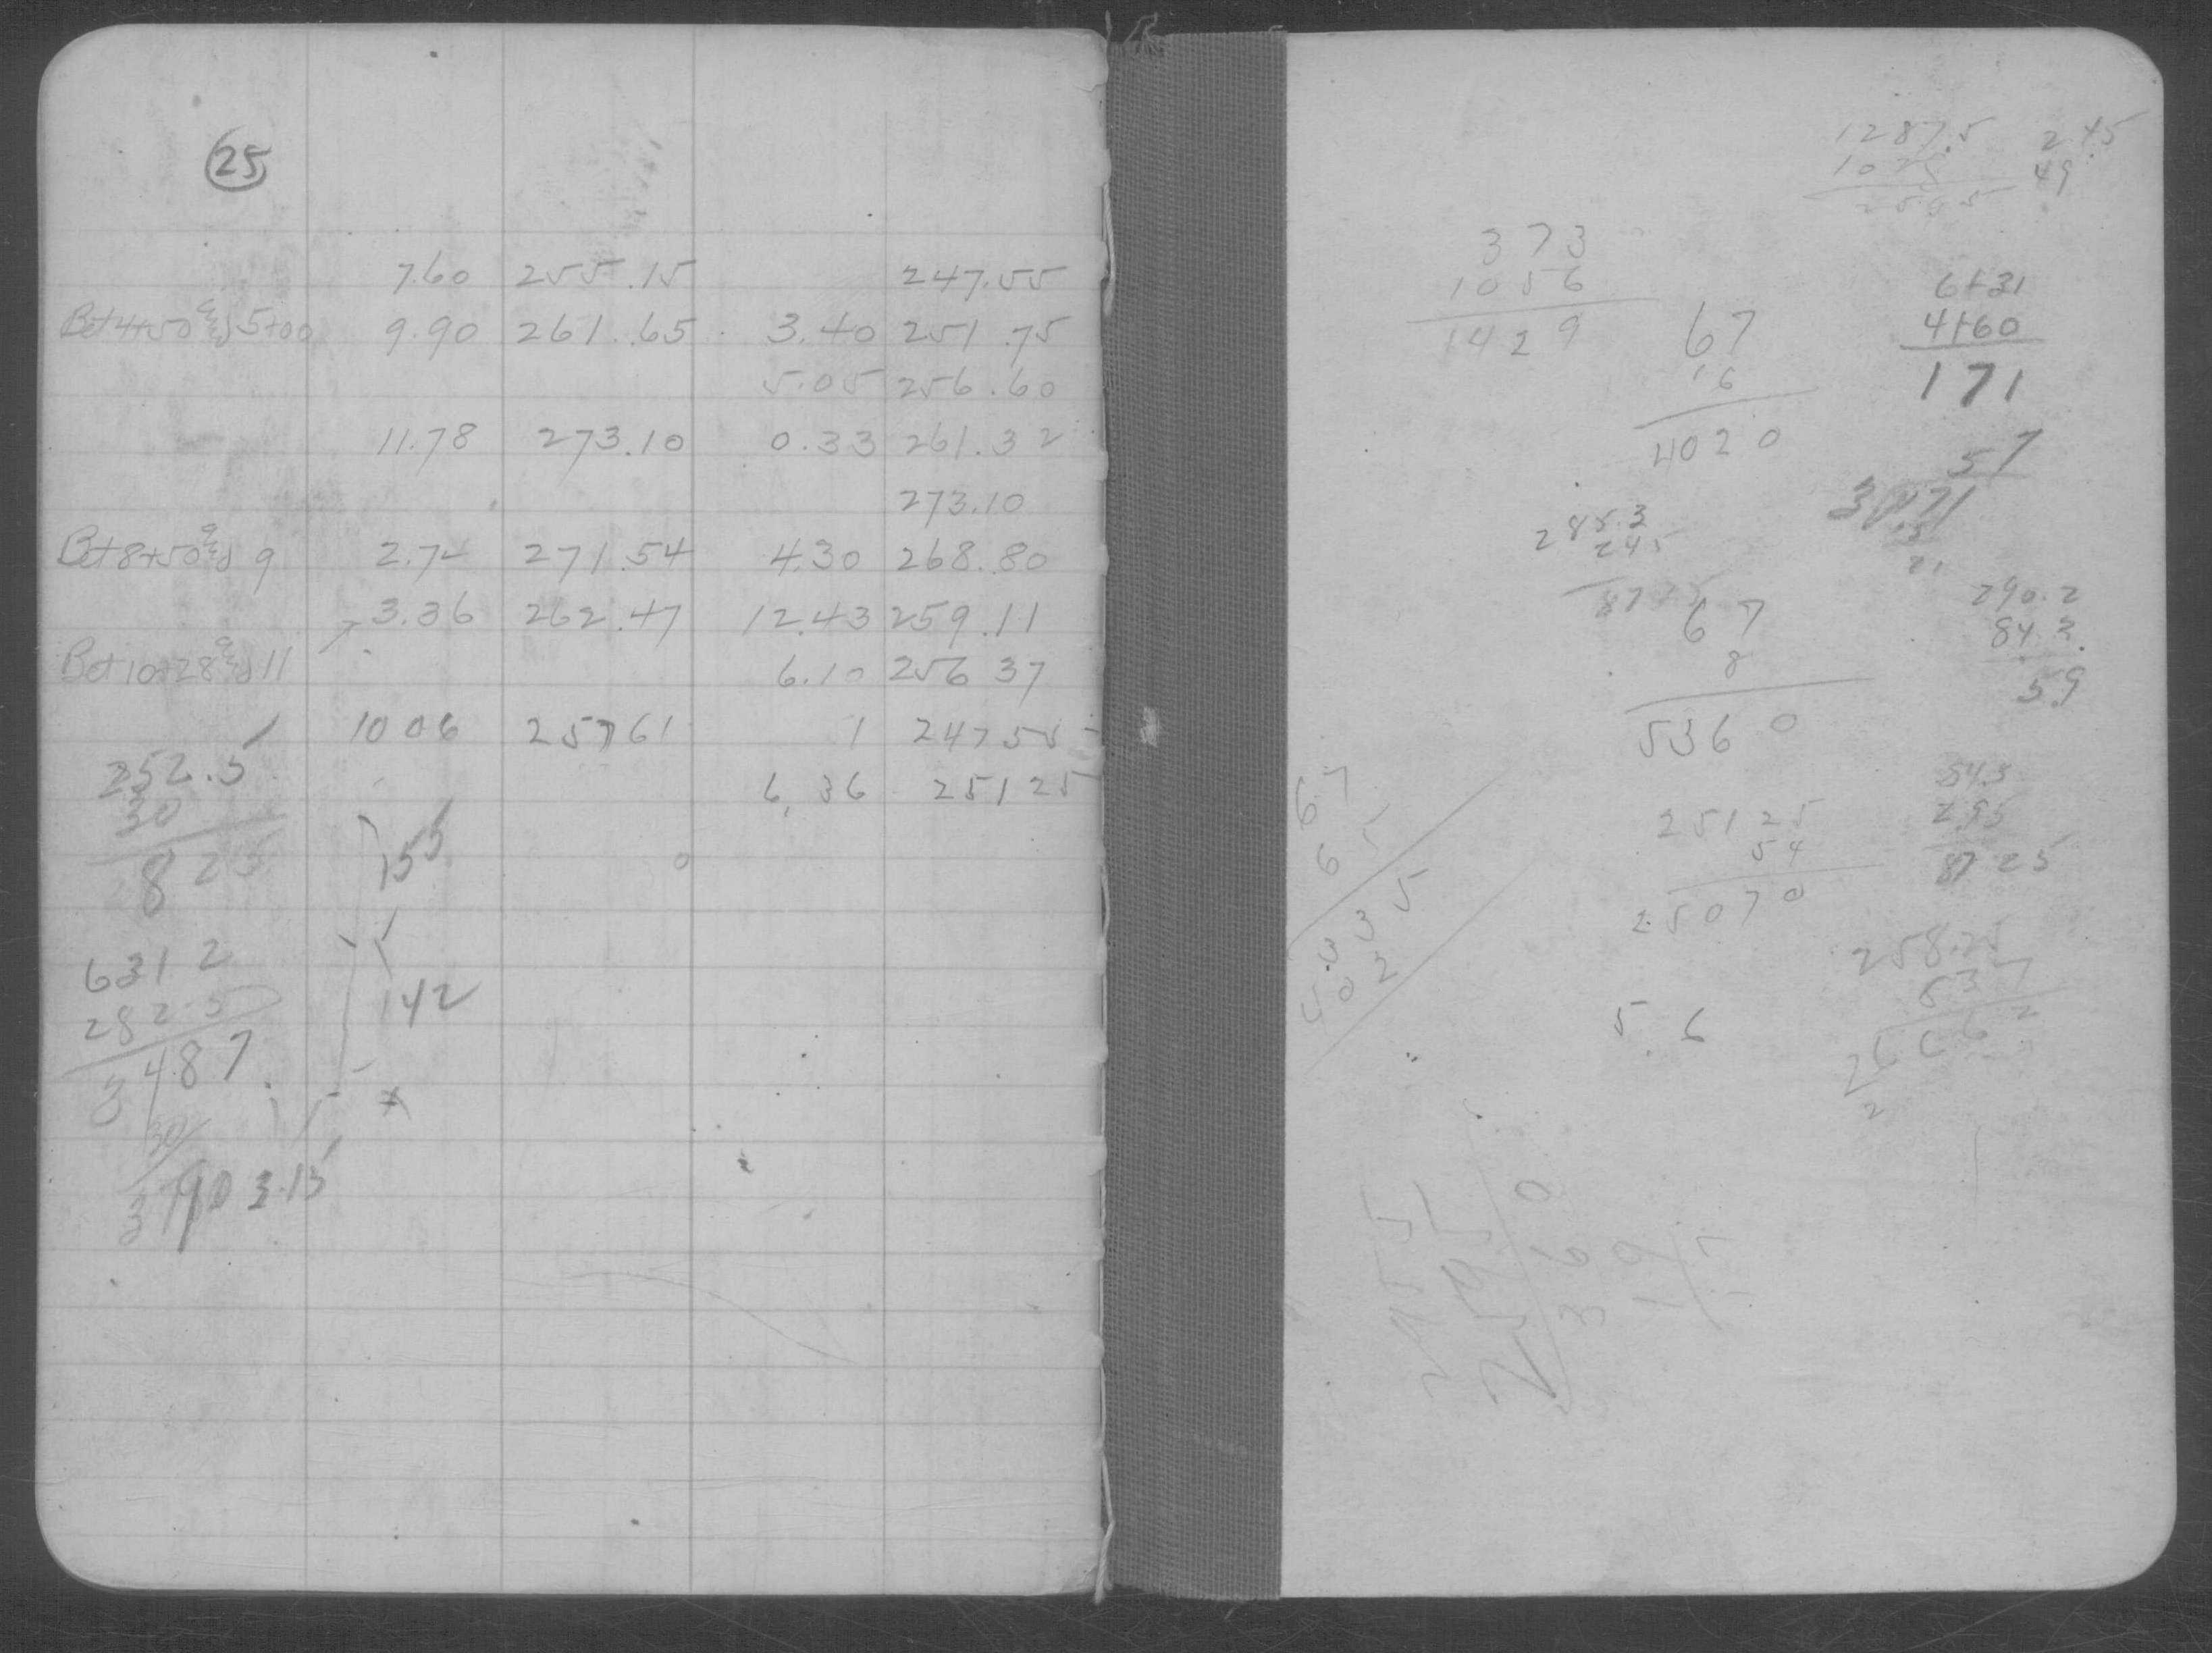 25
7.60 255.15 247.55
Bet 4+50 and 5+00 9.90 261.65 3.40 251.75
5.05 256.60
11.78 273.10 0.33 261.32
273.10
Bet 8+50 and 9 2.74 271.54 4.30 268.80
3.36 262.47 12.43 259.11
Bet 10+28 and 11 6.10 256 37
10 06 257 61 1 247 55
6.36 251 25
252.5
30
8 25
155
631 2
282 5
3487
142
30
3 15
1287.5
2.45
49
373
1056
1429
67
16
4020
6+31
4+60
171
57
285.3
245
67
8
5360
290.2
84.2
59
6.7
6 5
3 3 5
4 0 2
251 25
54
25070
54.5
295
87 25
258.25
837
2662
2
5.6
295 5
2595
360
19